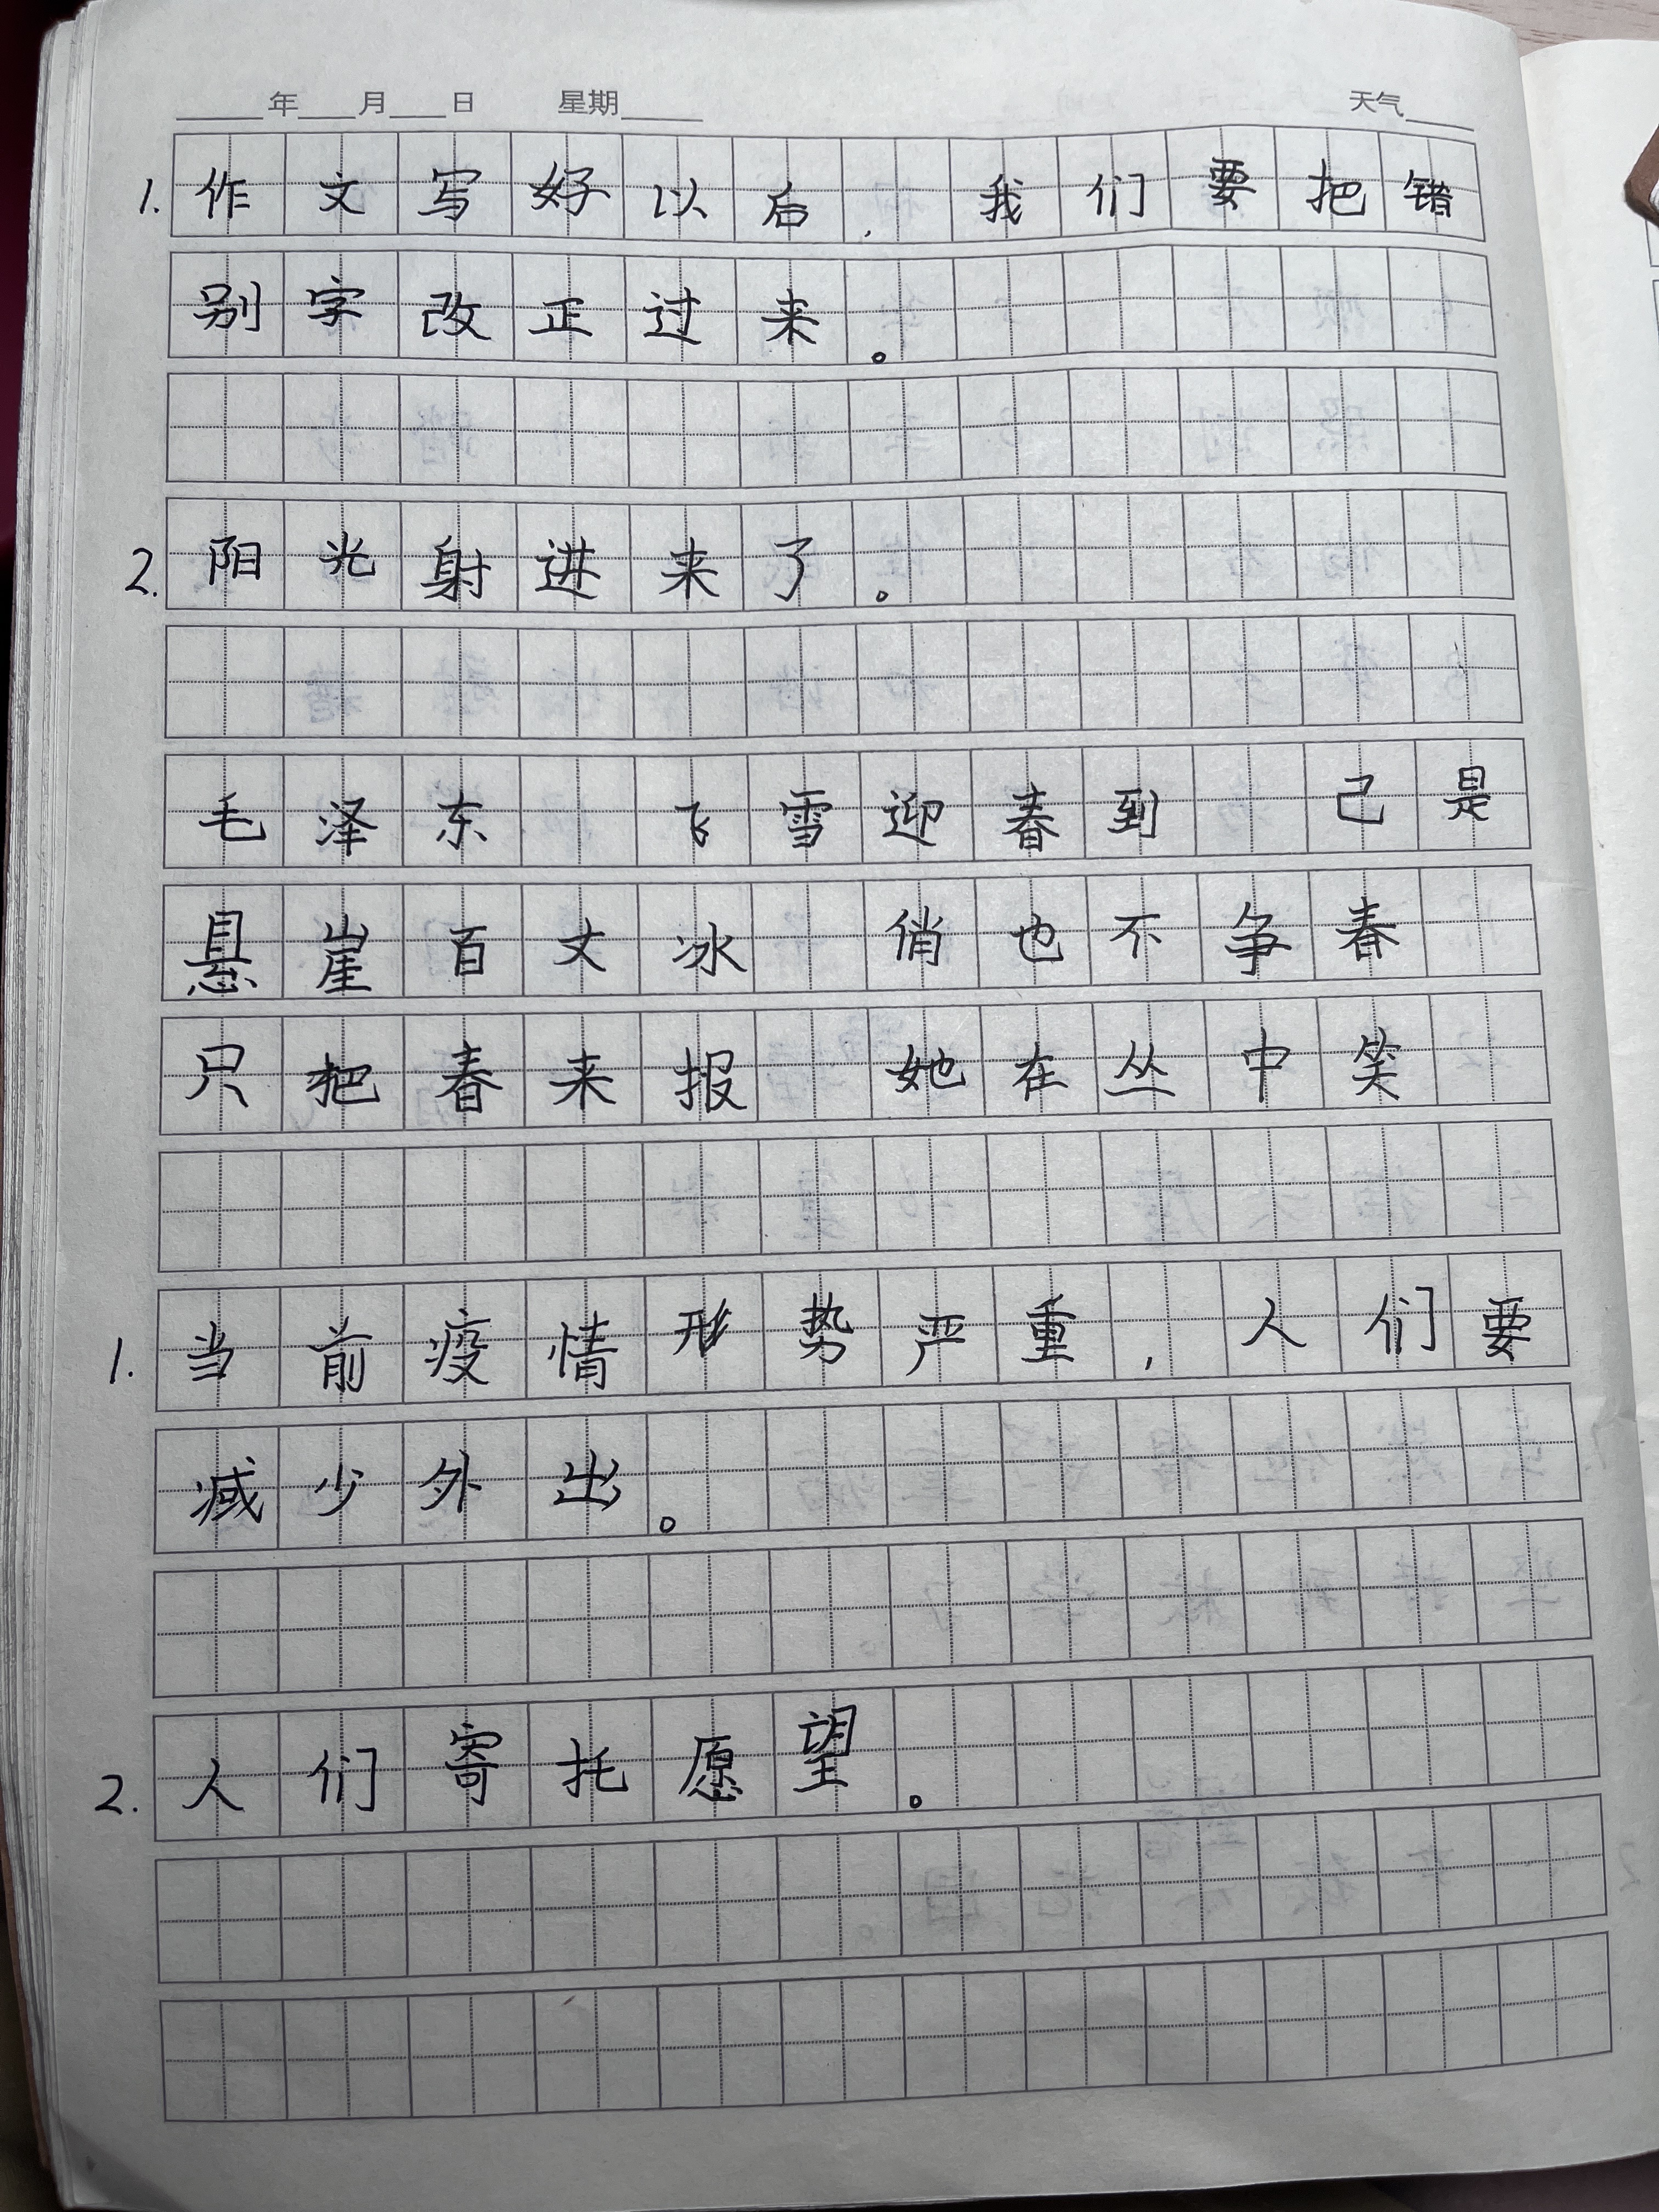 年 月 日 星期 天气
1. 作文写好以后,我们要把错
别字改正过来。
2. 阳光射进来了。
毛泽东 飞雪迎春到 己是
悬崖百丈冰 俏也不争春
只把春来报 她在丛中笑
1. 当前疫情形势严重,人们要
减少外出。
2. 人们寄托愿望。